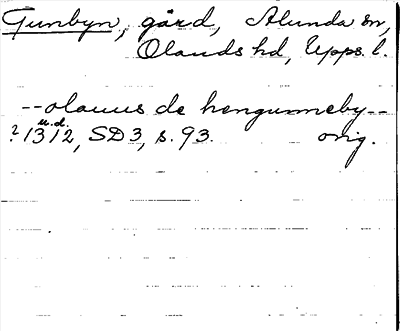 Gunbyn, gård, Alunda sn,
Olands hd, Upps. l.
--olauus de hengunneby--
u.d.
? 1312, SD3, s. 93. orig.